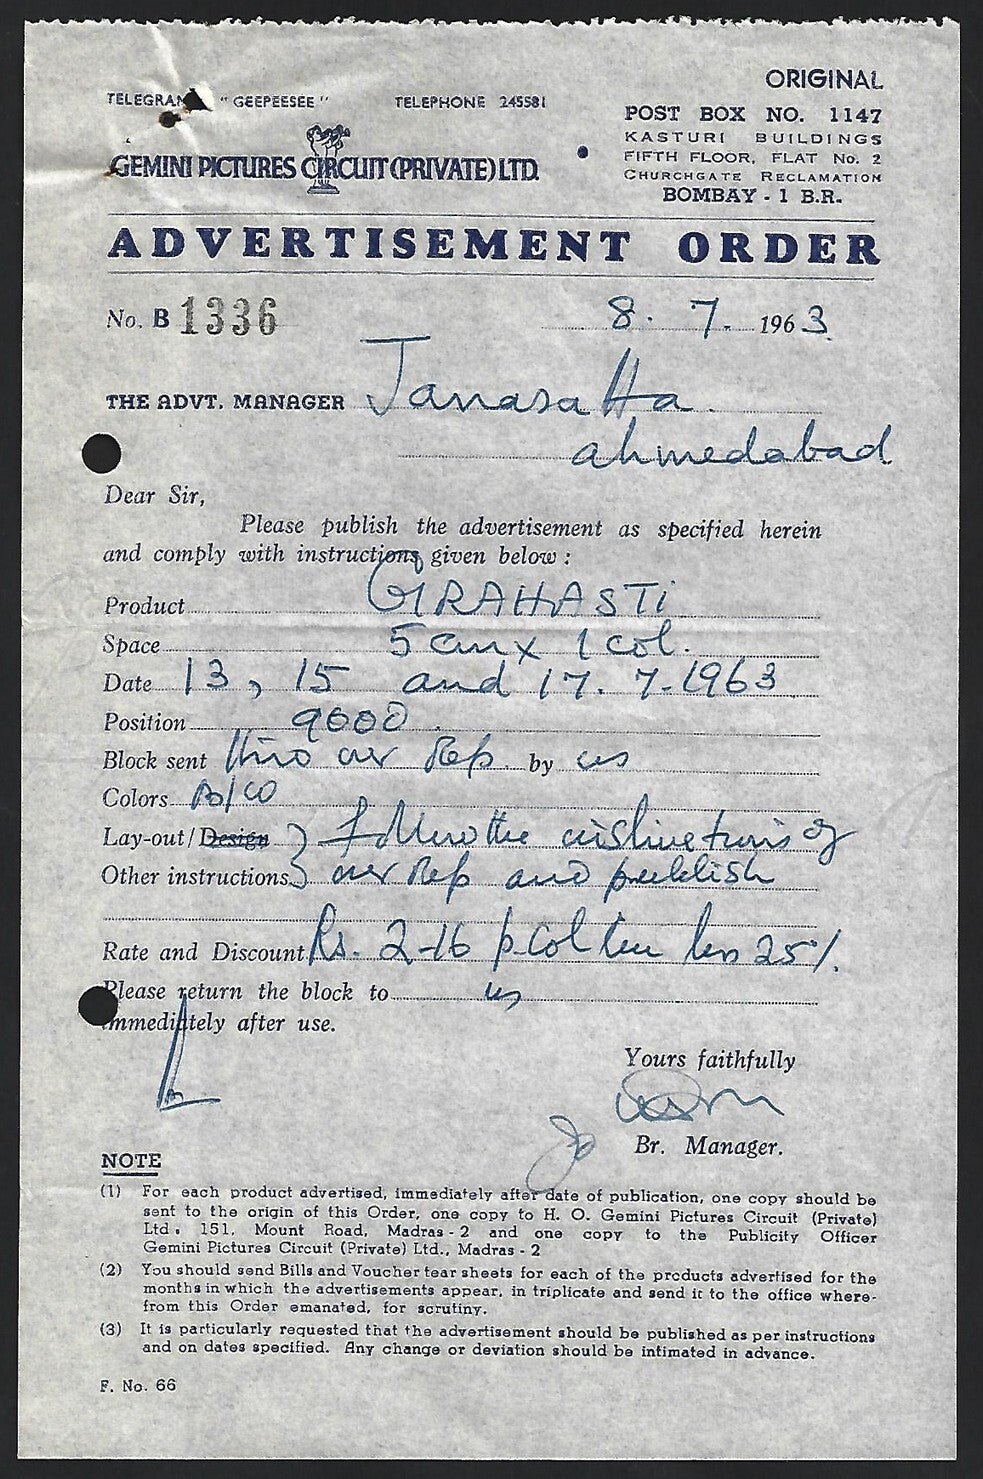 ORIGINAL
TELEGRAM "GEEPEESEE" TELEPHONE 245581
POST BOX NO. 1147
KASTURI BUILDINGS
FIFTH FLOOR, FLAT No. 2
CHURCHGATE RECLAMATION
BOMBAY - 1 B.R.
GEMINI PICTURES CIRCUIT (PRIVATE) LTD.
ADVERTISEMENT ORDER
No. B 1336 8. 7. 1963
THE ADVT. MANAGER Janasatta
ahmedabad
Dear Sir,
Please publish the advertisement as specified herein
and comply with instructions given below :
Product GRAHASTi
Space 5 cm x 1 col.
Date 13, 15 and 17. 7. 1963
Position good
Block sent thro our Rep. by us
Colors B/W
Lay-out/Design } Follow the instructions of
Other instructions } our Rep and publish
Rate and Discount Rs. 2-16 p. Col cm less 25%
Please return the block to us
immediately after use.
Yours faithfully
Br. Manager.
NOTE
(1) For each product advertised, immediately after date of publication, one copy should be
sent to the origin of this Order, one copy to H. O. Gemini Pictures Circuit (Private)
Ltd. 151, Mount Road, Madras - 2 and one copy to the Publicity Officer
Gemini Pictures Circuit (Private) Ltd., Madras - 2
(2) You should send Bills and Voucher tear sheets for each of the products advertised for the
months in which the advertisements appear, in triplicate and send it to the office where-
from this Order emanated, for scrutiny.
(3) It is particularly requested that the advertisement should be published as per instructions
and on dates specified. Any change or deviation should be intimated in advance.
F. No. 66